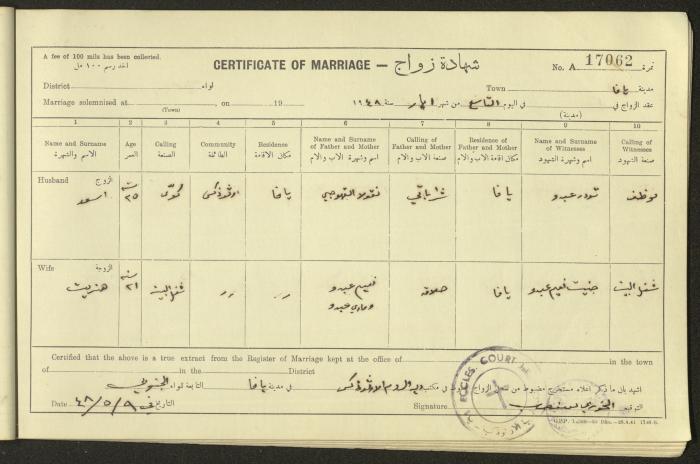 A fee of 100 mils has been collected.
اخذ رسم ١٠٠ مل
CERTIFICATE OF MARRIAGE — شهادة زواج
No. A 17062 نمرة
District لواء
Town مدينة يافا
Marriage solemnised at , on 19
(Town)
عقد الزواج في في اليوم التاسع من شهر ايار سنة ١٩٤٨
(مدينة)
1 2 3 4 5 6 7 8 9 10
Name and Surname
الاسم والشهرة
Age
العمر
Calling
الصنعة
Community
الطائفة
Residence
مكان الاقامة
Name and Surname of Father and Mother
اسم وشهرة الاب والام
Calling of Father and Mother
صنعة الاب والام
Residence of Father and Mother
مكان اقامة الاب والام
Name and Surname of Witnesses
اسم وشهرة الشهود
Calling of Witnesses
صنعة الشهود
Husband الزوج
اسعد
سنة ٣٥
ارثوذكس
يافا
نقولا
يافا
تودر عبدو
موظف
Wife الزوجة
هنرييت
سنة ٢١
شغل البيت
نعيم عبدو
وماري عبدو
يافا
نعيم عبدو
شغل البيت
Certified that the above is a true extract from the Register of Marriage kept at the office of in the town
of in the District
اشهد بان ما ذكر اعلاه مستخرج مضبوط من سجل الزواج في مكتب الروم الارثوذكس في مدينة يافا التابعة لواء
Date التاريخ في ٩/٥/٤٨
Signature التوقيع الخوري
ECCLES. COURT